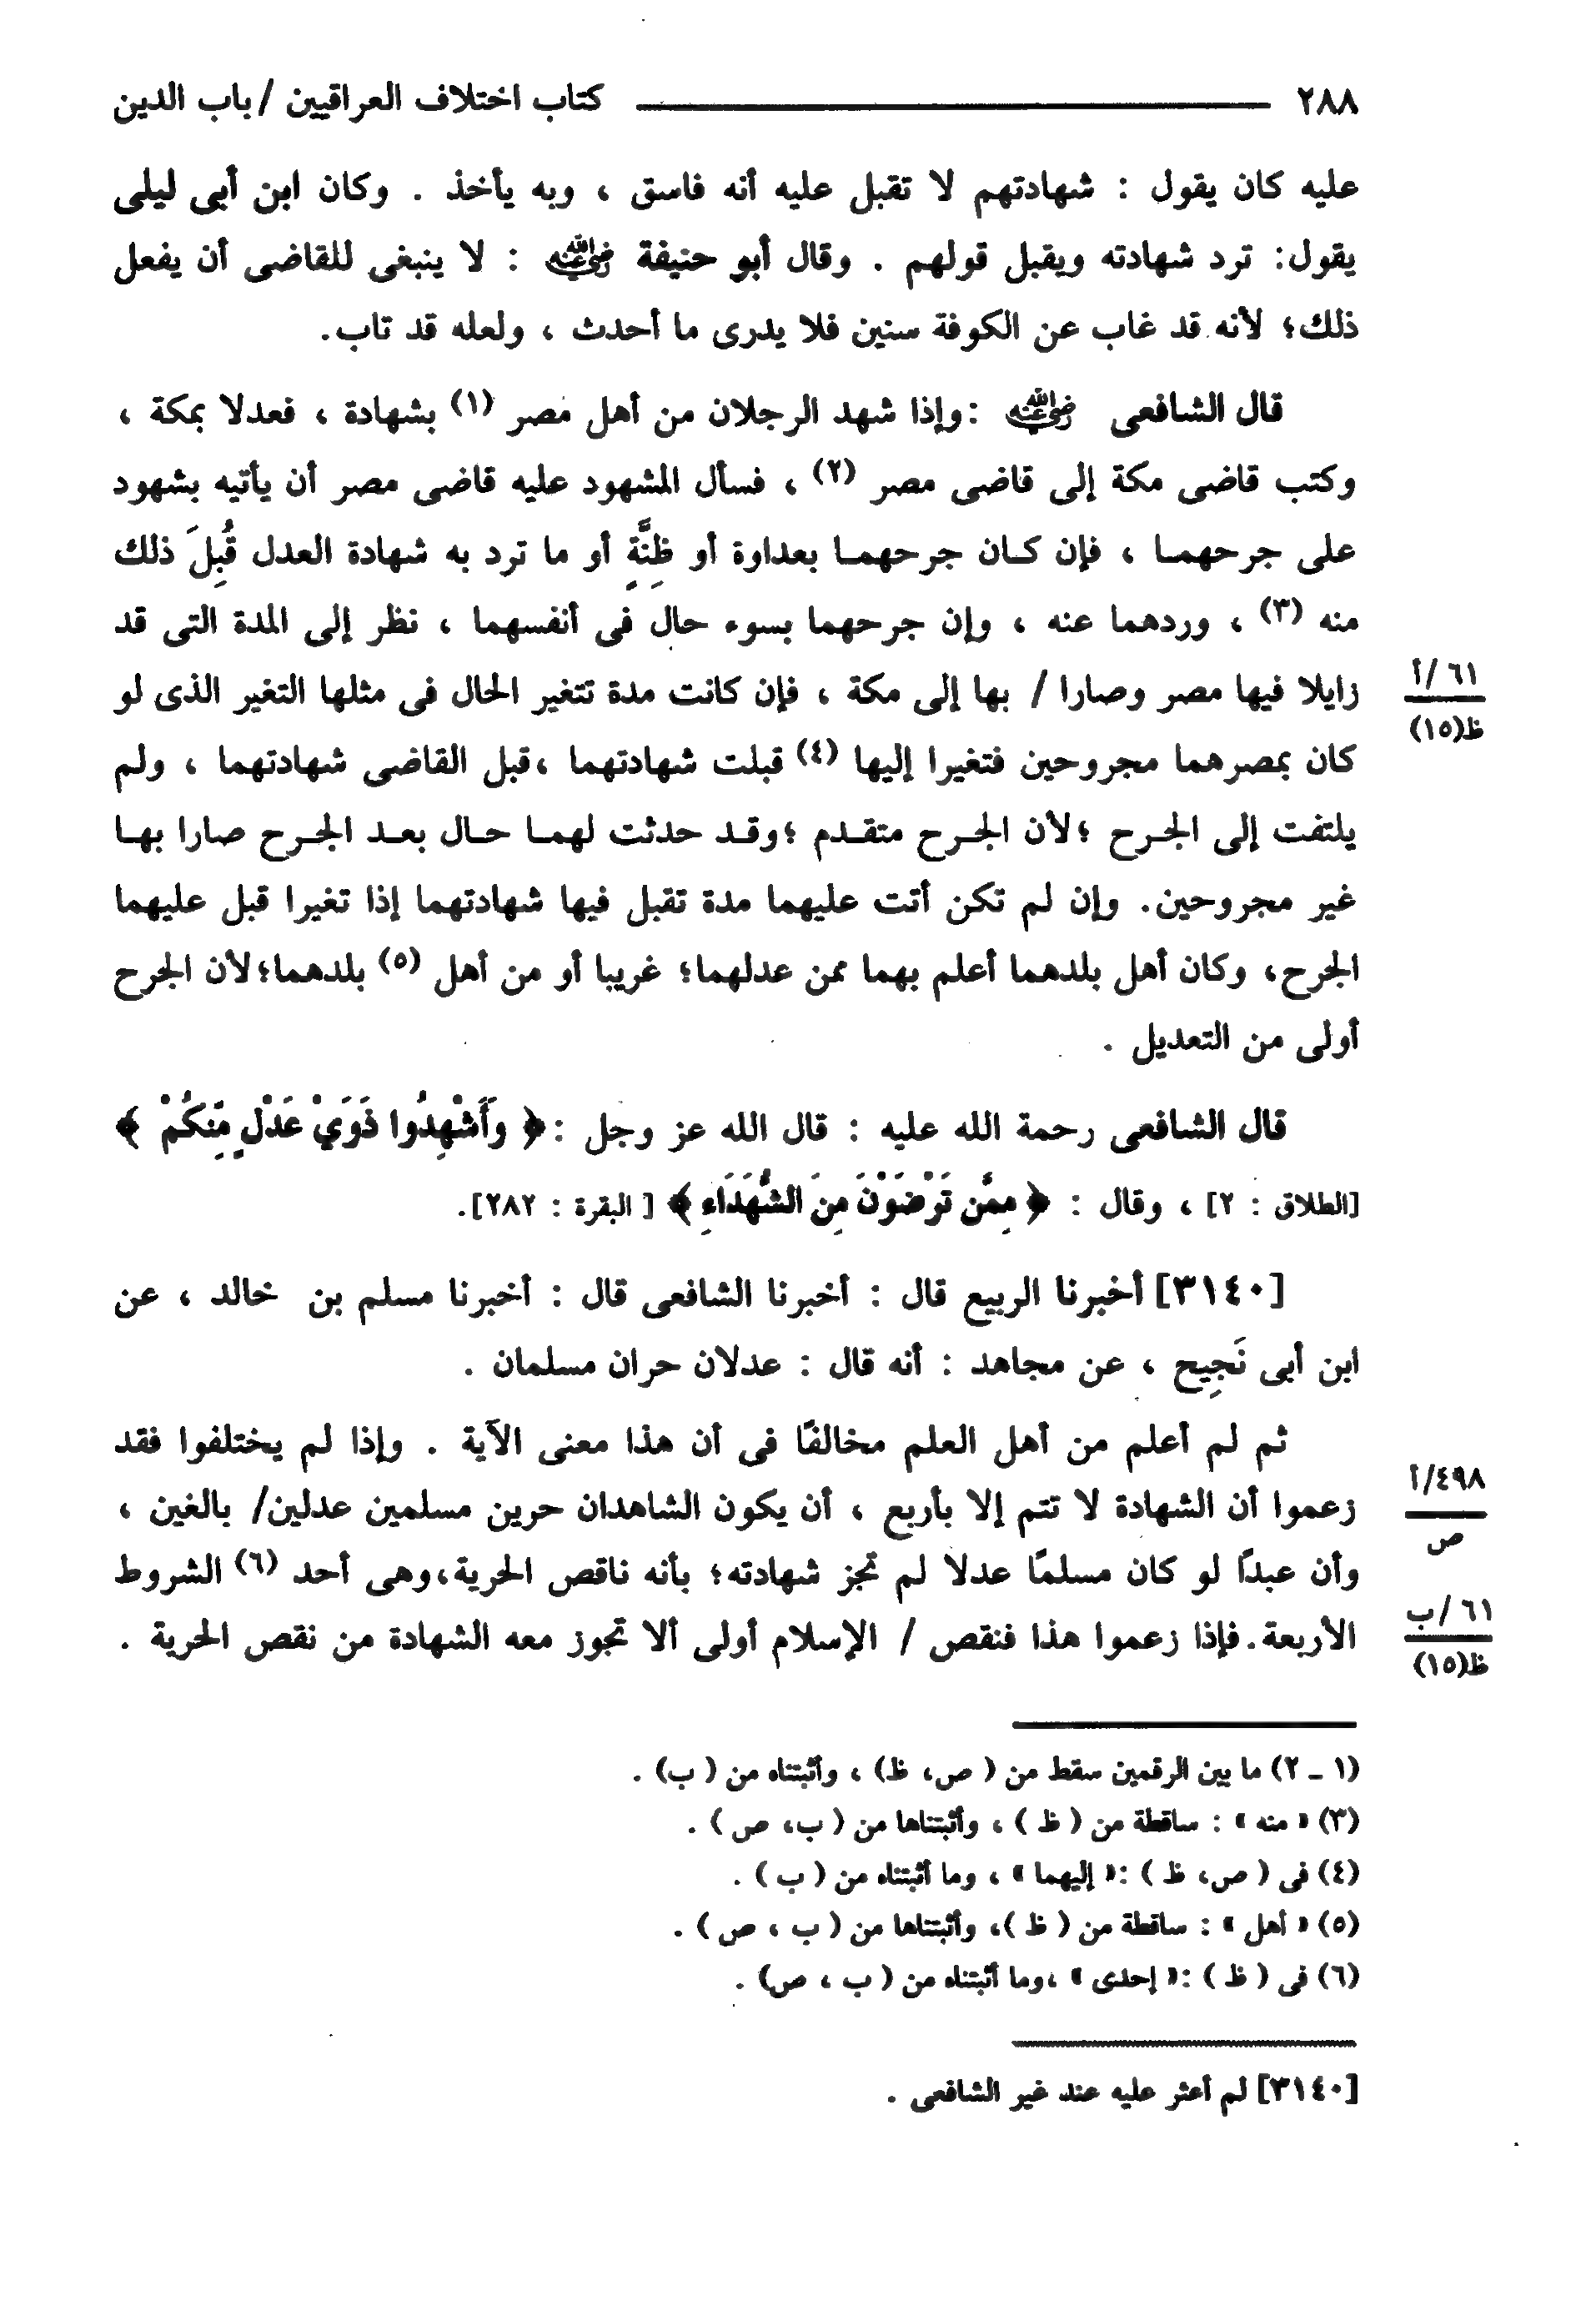 ٢٨٨ كتاب اختلاف العراقيين / باب الدين
عليه كان يقول : شهادتهم لا تقبل عليه أنه فاسق ، وبه يأخذ . وكان ابن أبى ليلى
يقول: ترد شهادته ويقبل قولهم . وقال أبو حنيفة رضي الله عنه : لا ينبغى للقاضى أن يفعل
ذلك؛ لأنه قد غاب عن الكوفة سنين فلا يدرى ما أحدث ، ولعله قد تاب.
قال الشافعى رضي الله عنه :وإذا شهد الرجلان من أهل مصر (١) بشهادة ، فعدلا بمكة ،
وكتب قاضى مكة إلى قاضى مصر (٢) ، فسأل المشهود عليه قاضى مصر أن يأتيه بشهود
على جرحهمـا ، فإن كـان جرحهمـا بعداوة أو ظِنَّةٍ أو ما ترد به شهادة العدل قُبِلَ ذلك
منه (٣) ، وردهما عنه ، وإن جرحهما بسوء حال فى أنفسهما ، نظر إلى المدة التى قد
زايلا فيها مصر وصارا / بها إلى مكة ، فإن كانت مدة تتغير الحال فى مثلها التغير الذى لو
٦١ /أ
ظ(١٥)
كان بمصرهما مجروحين فتغيرا إليها (٤) قبلت شهادتهما ،قبل القاضى شهادتهما ، ولم
يلتفت إلى الجـرح ؛لأن الجـرح متقـدم ؛وقـد حدثت لهمـا حـال بعـد الجـرح صارا بهـا
غير مجروحين. وإن لم تكن أتت عليهما مدة تقبل فيها شهادتهما إذا تغيرا قبل عليهما
الجرح، وكان أهل بلدهما أعلم بهما ممن عدلهما؛ غريبا أو من أهل (٥) بلدهما؛لأن الجرح
أولى من التعديل .
قال الشافعى رحمة الله عليه : قال الله عز وجل :﴿ وَأَشْهِدُوا ذَوَيْ عَدْلٍ مِّنكُمْ ﴾
[الطلاق : ٢] ، وقال : ﴿ مِمَّن تَرْضَوْنَ مِنَ الشُّهَدَاءِ ﴾ [ البقرة : ٢٨٢].
[٣١٤٠] أخبرنا الربيع قال : أخبرنا الشافعى قال : أخبرنا مسلم بن خالد ، عن
ابن أبى نَجِيح ، عن مجاهد : أنه قال : عدلان حران مسلمان .
ثم لم أعلم من أهل العلم مخالفًا فى أن هذا معنى الآية . وإذا لم يختلفوا فقد
زعموا أن الشهادة لا تتم إلا بأربع ، أن يكون الشاهدان حرين مسلمين عدلين/ بالغين ،
٤٩٨/أ
ص
وأن عبدًا لو كان مسلمًا عدلا لم تجز شهادته؛ بأنه ناقص الحرية،وهى أحد (٦) الشروط
الأربعة.فإذا زعموا هذا فنقص / الإسلام أولى ألا تجوز معه الشهادة من نقص الحرية .
٦١ /ب
ظ(١٥)
(١ ـ ٢) ما بين الرقمين سقط من ( ص، ظ) ، وأثبتناه من ( ب) .
(٣) « منه » : ساقطة من ( ظ ) ، وأثبتناها من ( ب، ص ) .
(٤) فى ( ص، ظ ) :« إليهما » ، وما أثبتناه من ( ب ) .
(٥) « أهل » : ساقطة من ( ظ )، وأثبتناها من ( ب ، ص ) .
(٦) فى ( ظ ) :« إحدى » ،وما أثبتناه من ( ب ، ص) .
[٣١٤٠] لم أعثر عليه عند غير الشافعى .